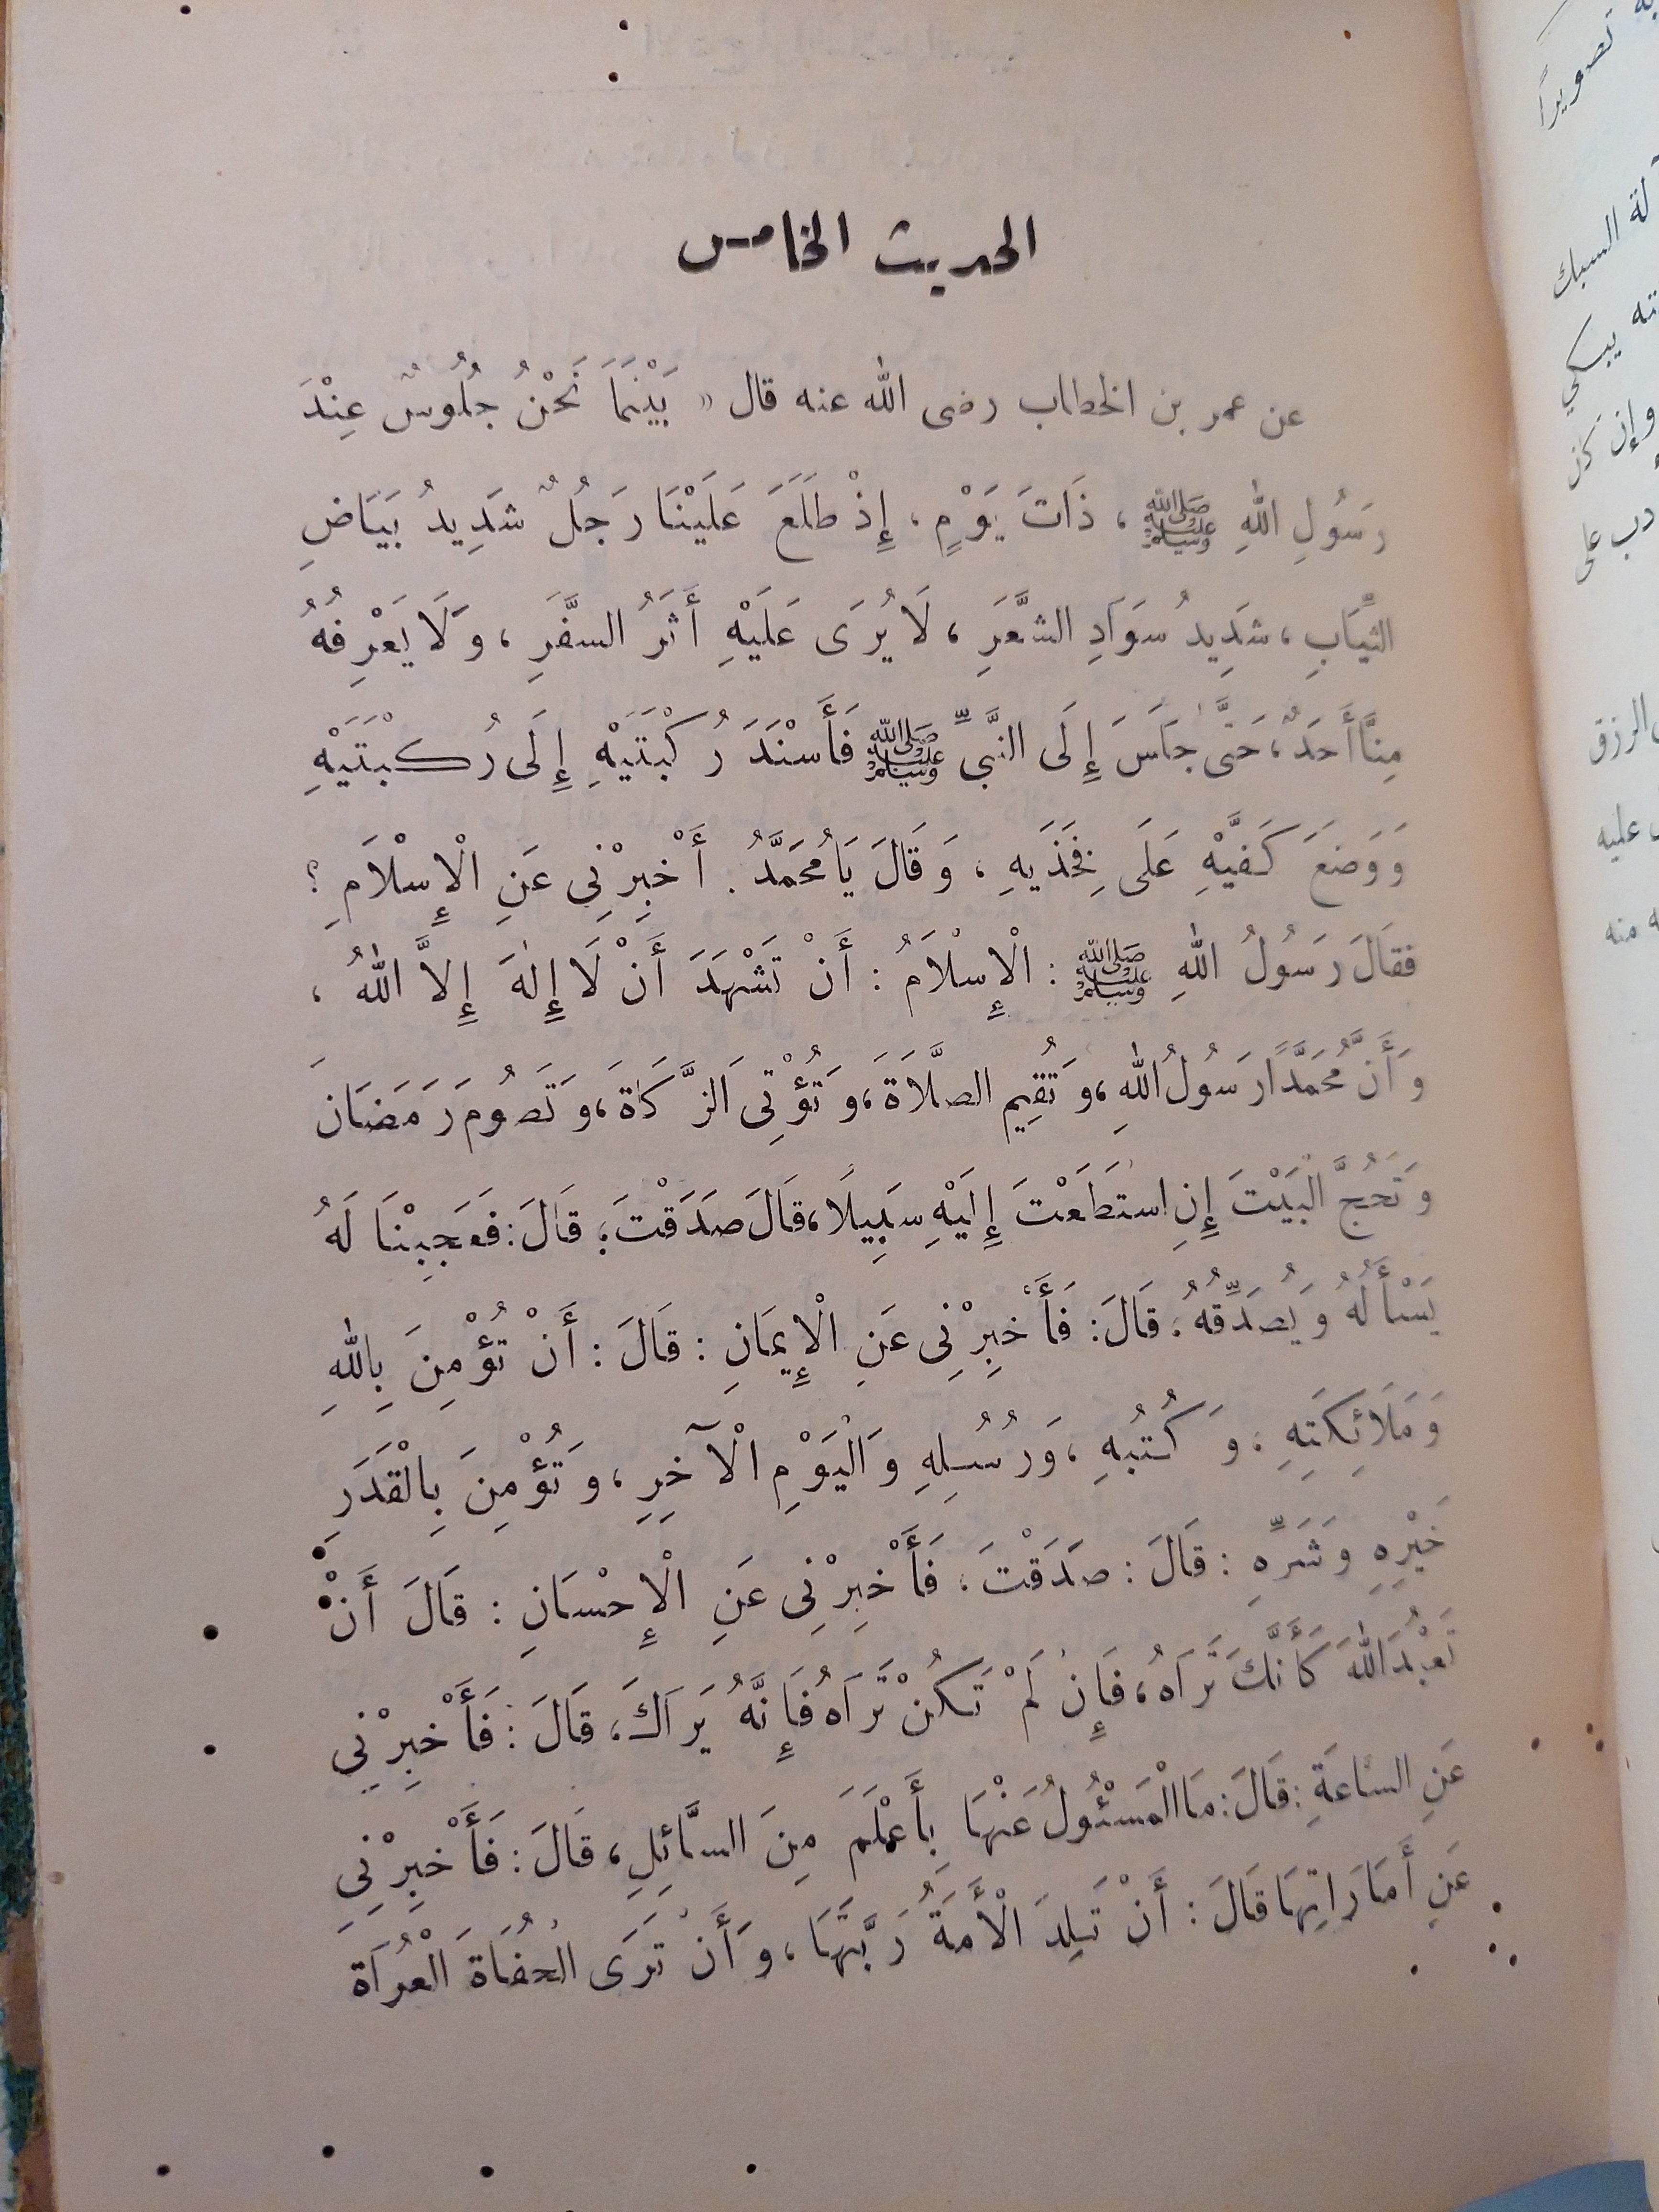 الحديث الخامس
عن عمر بن الخطاب رضى الله عنه قال « بَيْنَمَا نَحْنُ جُلُوسٌ عِنْدَ
رَسُولِ اللهِ ﷺ ، ذَاتَ يَوْمٍ ، إِذْ طَلَعَ عَلَيْنَا رَجُلٌ شَدِيدُ بَيَاضِ
الثِّيَابِ ، شَدِيدُ سَوَادِ الشَّعَرِ ، لَا يُرَى عَلَيْهِ أَثَرُ السَّفَرِ ، وَلَا يَعْرِفُهُ
مِنَّا أَحَدٌ ، حَتَّى جَلَسَ إِلَى النَّبِيِّ ﷺ فَأَسْنَدَ رُكْبَتَيْهِ إِلَى رُكْبَتَيْهِ
وَوَضَعَ كَفَّيْهِ عَلَى فَخِذَيهِ ، وَقَالَ يَا مُحَمَّدُ . أَخْبِرْنِى عَنِ الْإِسْلَامِ ؟
فَقَالَ رَسُولُ اللهِ ﷺ : الْإِسْلَامُ : أَنْ تَشْهَدَ أَنْ لَا إِلٰهَ إِلاَّ اللهُ ،
وَأَنَّ مُحَمَّدًا رَسُولُ اللهِ ، وَتُقِيمَ الصَّلَاةَ ، وَتُؤْتِىَ الزَّكَاةَ ، وَتَصُومَ رَمَضَانَ
وَتَحُجَّ الْبَيْتَ إِنِ اسْتَطَعْتَ إِلَيْهِ سَبِيلًا ، قَالَ صَدَقْتَ ؛ قَالَ : فَعَجِبْنَا لَهُ
يَسْأَلُهُ وَيُصَدِّقُهُ . قَالَ : فَأَخْبِرْنِى عَنِ الْإِيمَانِ : قَالَ : أَنْ تُؤْمِنَ بِاللهِ
وَمَلَائِكَتِهِ ، وَكُتُبِهِ ، وَرُسُلِهِ وَالْيَوْمِ الْآخِرِ ، وَتُؤْمِنَ بِالْقَدَرِ
خَيْرِهِ وَشَرِّهِ : قَالَ : صَدَقْتَ . فَأَخْبِرْنِى عَنِ الْإِحْسَانِ : قَالَ أَنْ
تَعْبُدَ اللهَ كَأَنَّكَ تَرَاهُ ، فَإِنْ لَمْ تَكُنْ تَرَاهُ فَإِنَّهُ يَرَاكَ ، قَالَ : فَأَخْبِرْنِى
عَنِ السَّاعَةِ : قَالَ : مَا الْمَسْئُولُ عَنْهَا بِأَعْلَمَ مِنَ السَّائِلِ ، قَالَ : فَأَخْبِرْنِى
عَنِ أَمَارَاتِهَا قَالَ : أَنْ تَلِدَ الْأَمَةُ رَبَّتَهَا ، وَأَنْ تَرَى الْحُفَاةَ الْعُرَاةَ
تصويراً
السبك
يبكي
وإن كان
دب على
الرزق
عليه
منه